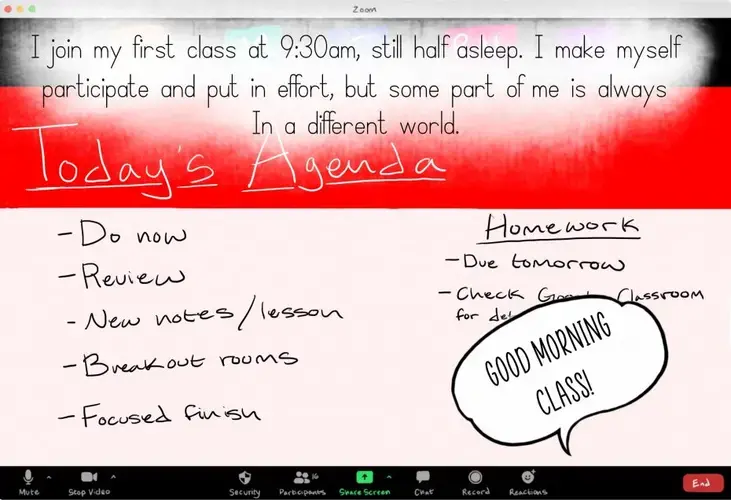 Zoom
I join my first class at 9:30am, still half asleep. I make myself
participate and put in effort, but some part of me is always
In a different world.
Today's Agenda
- Do now
- Review
- New notes/lesson
- Breakout rooms
- Focused finish
Homework
- Due tomorrow
- Check Classroom
for
GOOD MORNING
CLASS!
Mute
Stop Video
Security
Participants
16
Share Screen
Chat
Record
Reactions
End